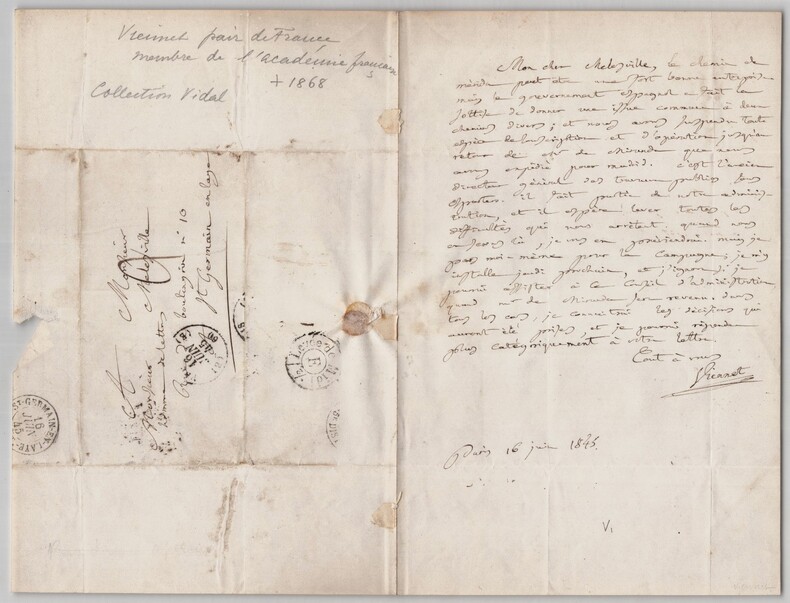 Viennet pair de France
membre de l'académie française
+ 1868
Collection Vidal
Monsieur
Monsieur Melesville
homme de lettres
boulingrin n° 10
St Germain en laye
ST-GERMAIN-EN-LAYE
16
JUIN
45
E
Mon cher Melesville, le chemin de
peut être une fort bonne entreprise
mais le gouvernement espagnol a fait la
sottise de donner une issue commune à deux
chemins divers; et nous avons suspendu toute
espèce de souscription et d'opération jusqu'au
retour de mr de Miranda que nous
avons expédié pour madrid. c'est l'ancien
directeur général des travaux publics sous
Espartero. il fait partie de notre adminis-
tration, et il espère lever toutes les
difficultés qui nous arrêtent. quand nous
en serons là, je vous en préviendrai. mais je
pars moi-même pour la Campagne; je m'y
installe jeudi prochain, et j'ignore si je
pourrai assister à le Conseil d'administration,
quand mr de Miranda sera revenu. dans
tous les cas, je connaitrai les décisions qui
auront été prises, et je pourrai répondre
plus catégoriquement à votre lettre.
Tout à vous
Viennet
Paris 16 juin 1845.